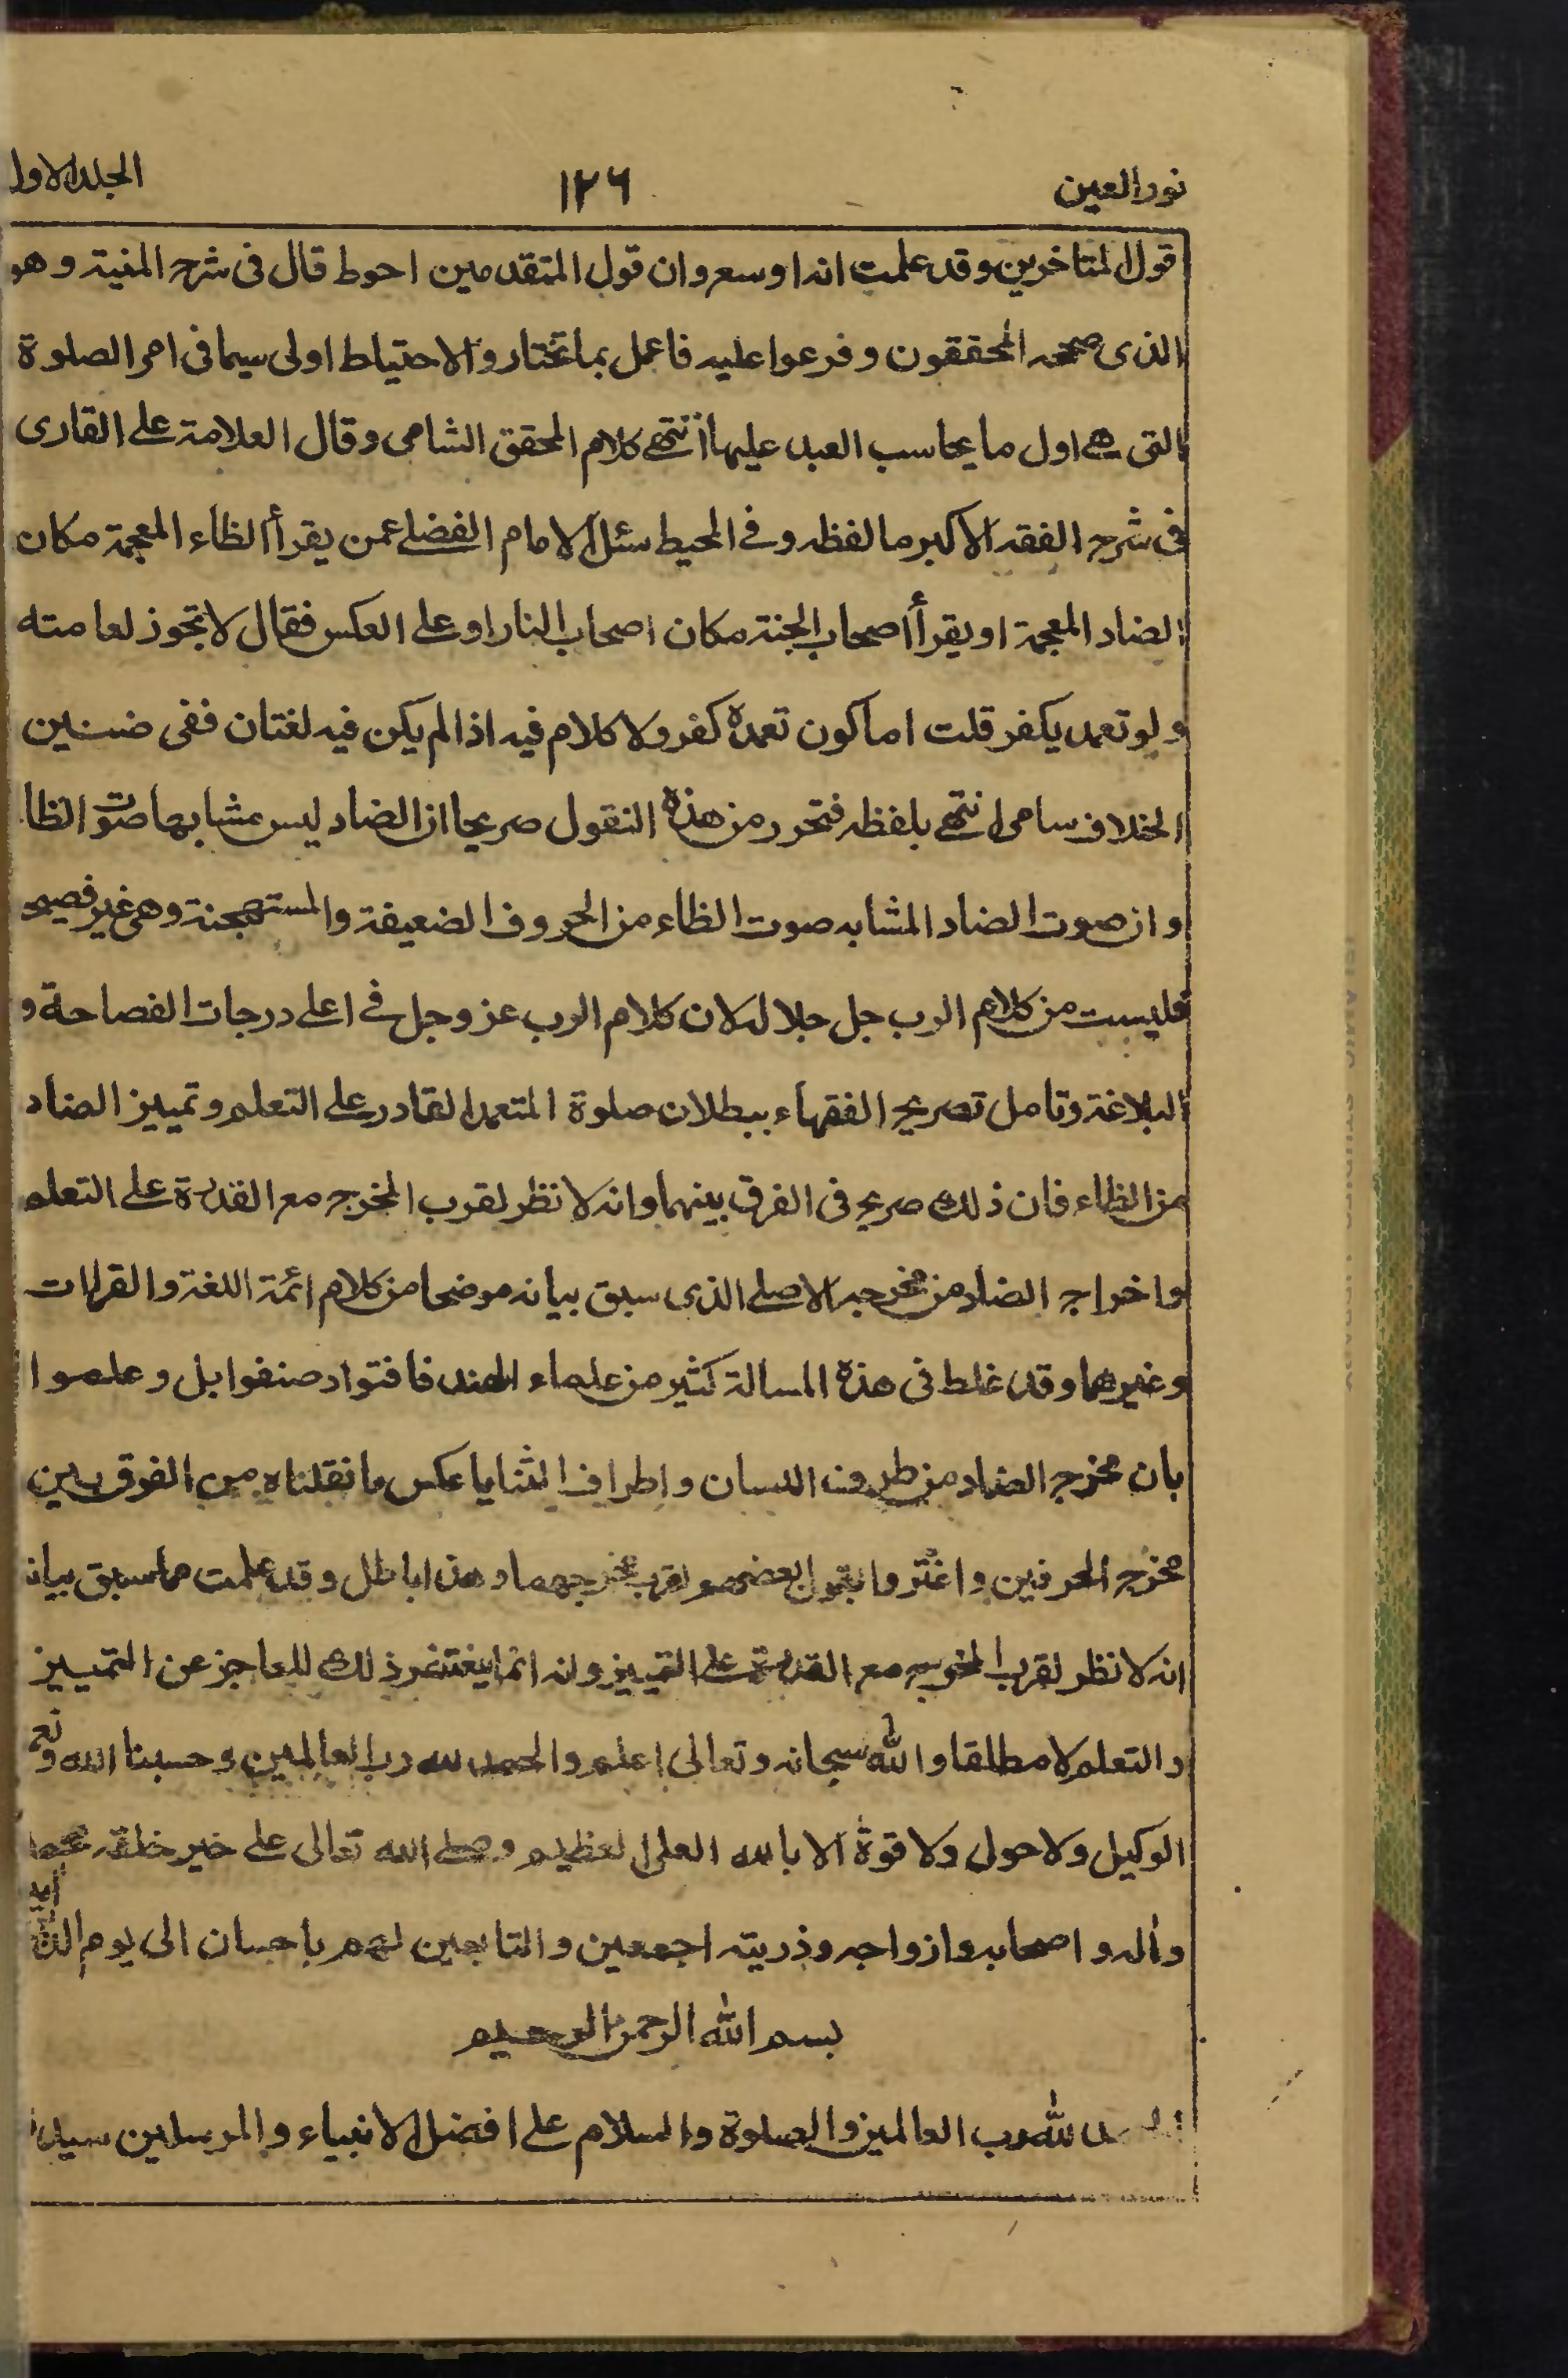 نور العين ١٢٦ الجلد الاول
قول المتاخرين وقد علمت انه اوسع وان قول المتقدمين احوط قال فى شرح المنية وهو
الذى صححه المحققون وفرعوا عليه فاعمل بما تختار والاحتياط اولى سيما فى امر الصلوة
التى هى اول ما يحاسب العبد عليها انتهى كلام المحقق الشامى وقال العلامة على القارى
فى شرح الفقه الاكبر ما لفظه وفى المحيط سئل الامام الفضلى عمن يقرأ الظاء المعجمة مكان
الضاد المعجمة او يقرأ اصحاب الجنة مكان اصحاب النار او على العكس فقال لا تجوز لعامته
ولو تعمد يكفر قلت اما كون تعمده كفر ولا كلام فيه اذا لم يكن فيه لغتان ففى ضنين
الخلاف سامى انتهى بلفظه فتحرر من هذه النقول صريحا ان الضاد ليس مشابها صوت الظا
وان صوت الضاد المشابه صوت الظاء من الحروف الضعيفة والمستهجنة وهى غير فصيحة
فليست من كلام الرب جل جلاله لان كلام الرب عز وجل فى اعلى درجات الفصاحة و
البلاغة وتامل تصريح الفقهاء ببطلان صلوة المتعمد القادر على التعلم وتمييز الضاد
من الظاء فان ذلك صريح فى الفرق بينهما وانه لا نظر لقرب المخرج مع القدرة على التعلم
واخراج الضاد من مخرجه الاصلى الذى سبق بيانه موضحا من كلام ائمة اللغة والقراات
وغيرهما وقد غلط فى هذه المسالة كثير من علماء الهند فافتوا وصنفوا بل وعلموا
بان مخرج الضاد من طرف اللسان واطراف الثنايا عكس ما نقلناه من الفرق بين
مخرج الحرفين واغتروا بقول بعضهم لقرب مخرجهما وهذا باطل وقد علمت مما سبق بيانه
انه لا نظر لقرب المخرج مع القدرة على التمييز وانه انما يغتفر ذلك للعاجز عن التمييز
والتعلم لا مطلقا والله سبحانه وتعالى اعلم والحمد لله رب العالمين وحسبنا الله ونعم
الوكيل ولا حول ولا قوة الا بالله العلى العظيم وصلى الله تعالى على خير خلقه محمد
واله واصحابه وازواجه وذريته اجمعين والتابعين لهم باحسان الى يوم الدين
بسم الله الرحمن الرحيم
الحمد لله رب العالمين والصلوة والسلام على افضل الانبياء والمرسلين سيدنا